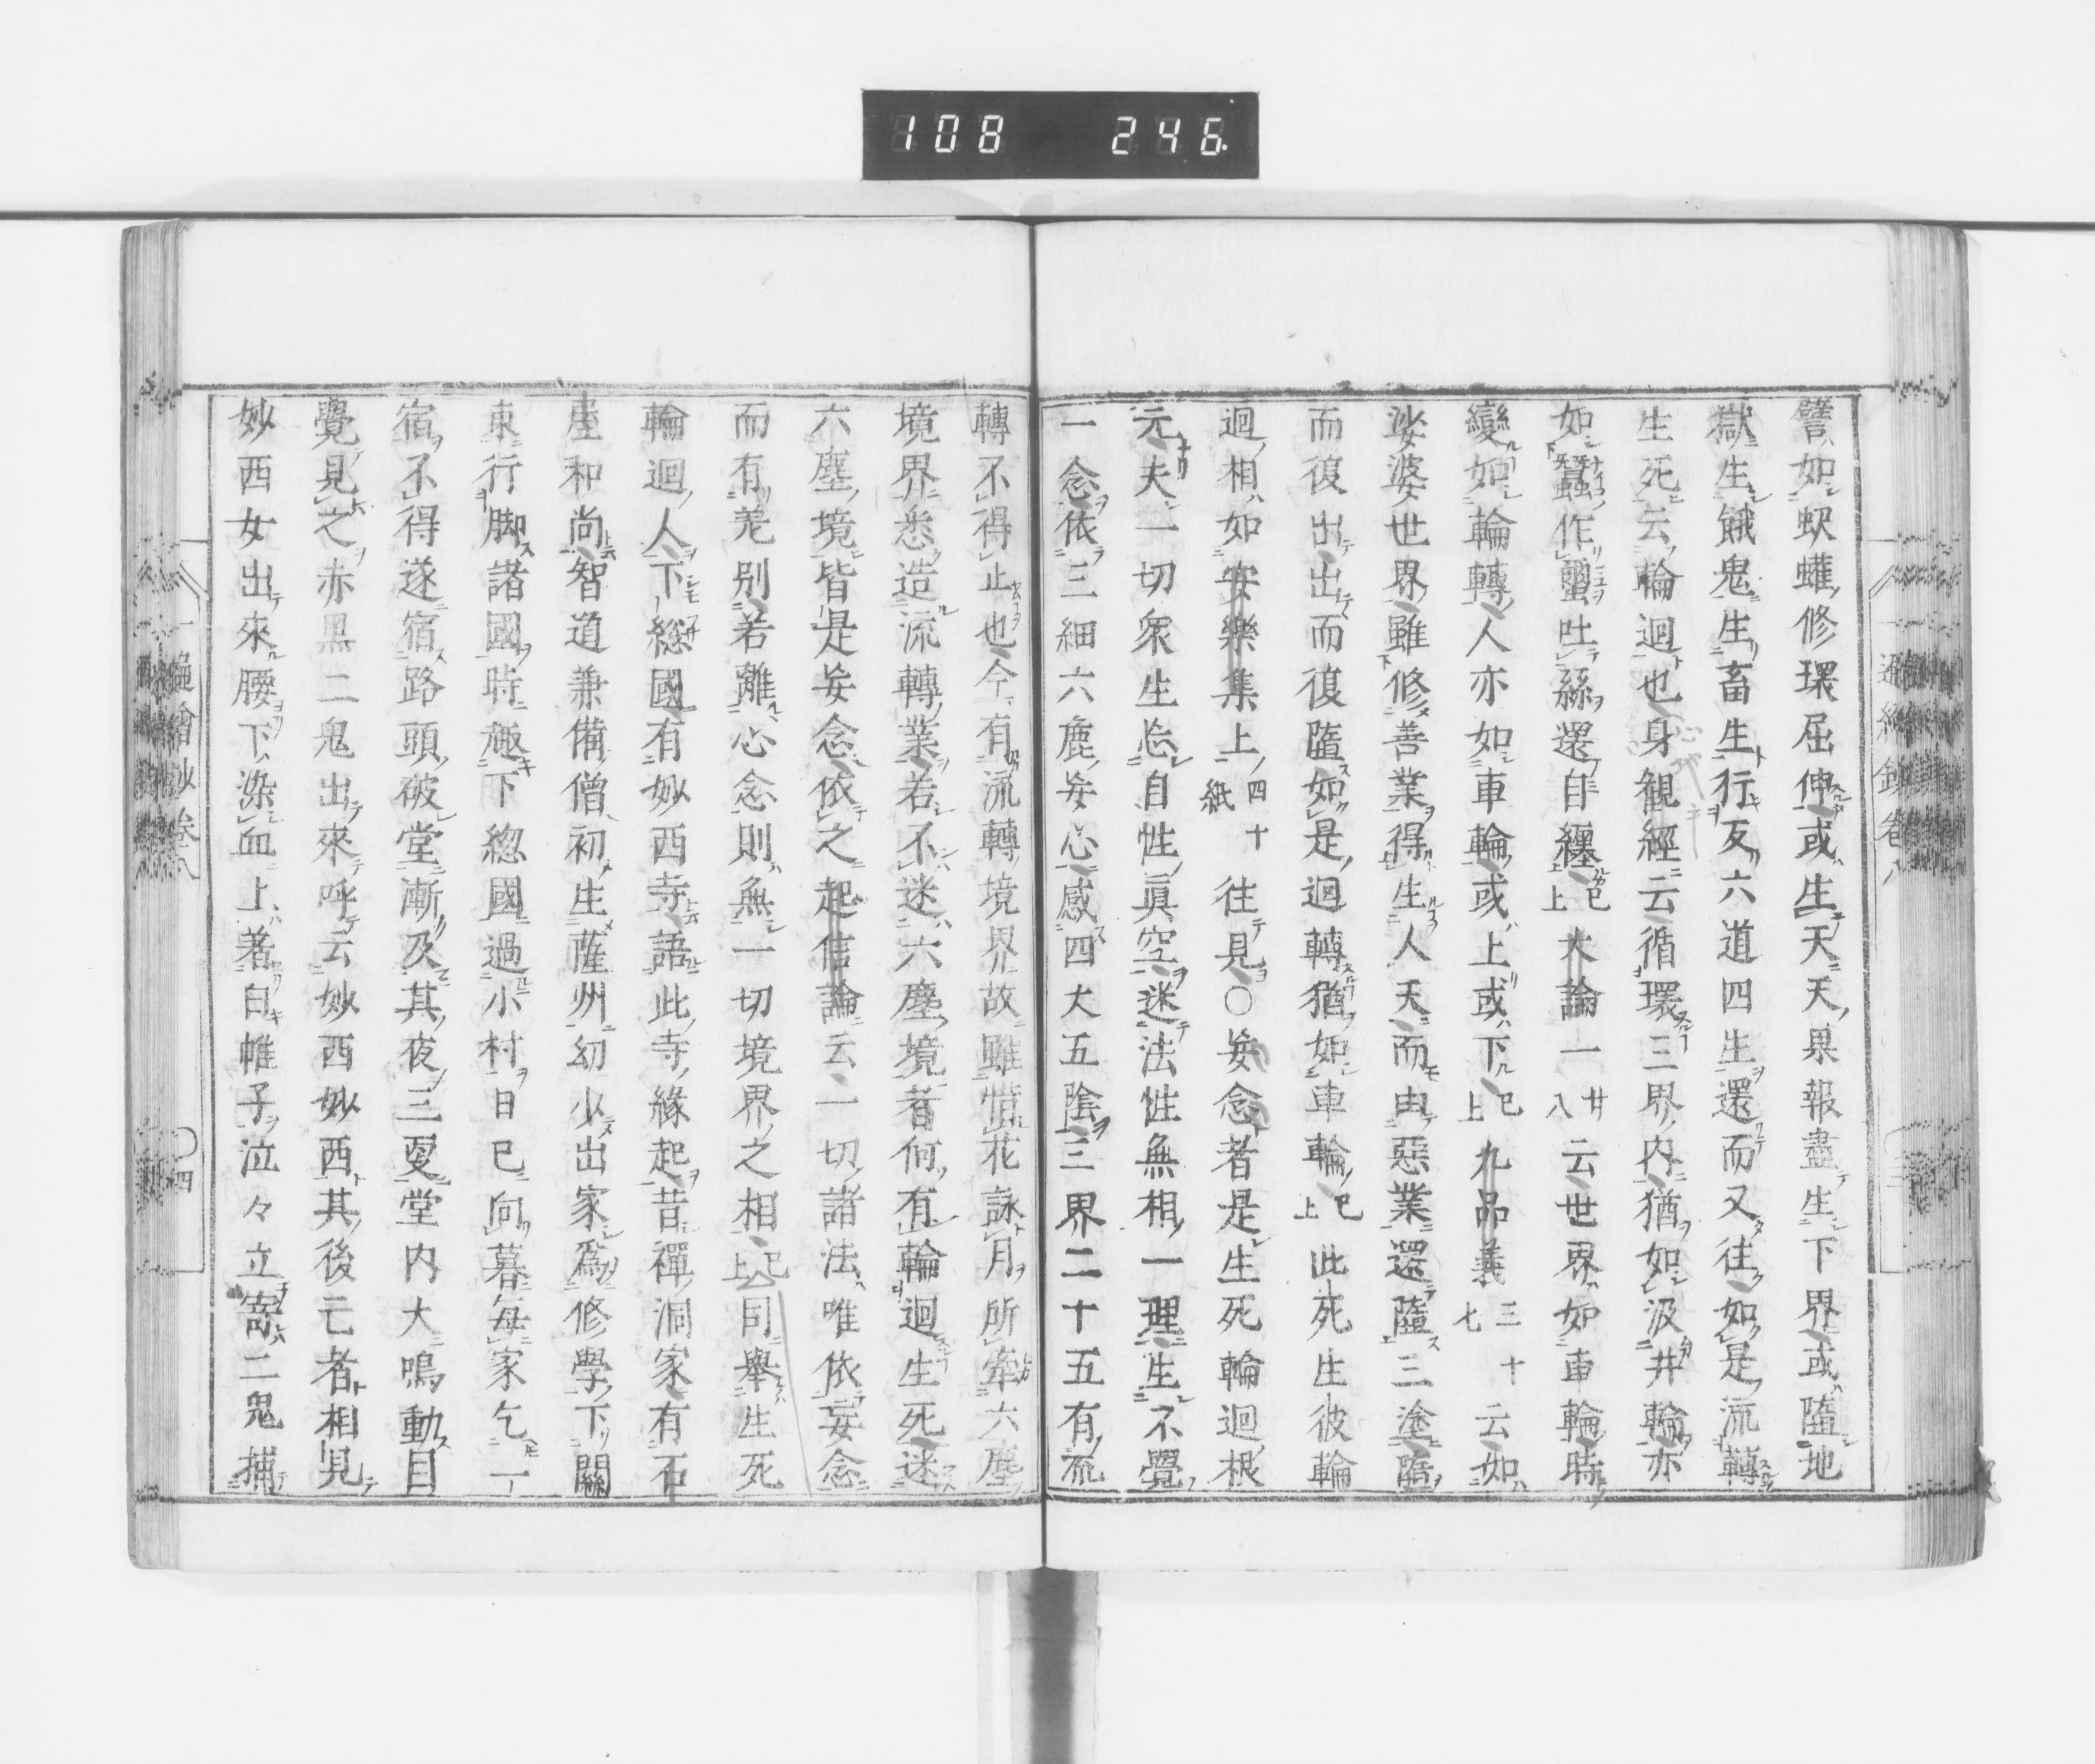 108 246
譬如蚇蠖修環屈伸或生天天果報盡生下界或墮地
獄生餓鬼生畜生行友六道四生還而又往如是流轉
生死云輪迴也身観經云循環三界内猶如汲井輪亦
如蠶作蠒吐絲還自纏已上大論一廿八云世界如車輪時
變如輪轉人亦如車輪或上或下已上九品義三十七云如
娑婆世界雖修善業得生人天而由惡業還墮三塗墮
而復出出而復墮如是迴轉猶如車輪已上此死生彼輪
迴相如安樂集上四十紙往見○妄念者是生死輪迴根
元夫一切衆生忘自性眞空迷法性無相一理生不覺
一念依三細六麁妄心感四大五陰三界二十五有流
轉不得止也今有流轉境界故雖憤花詠月所牽六塵
境界悉造流轉業若不迷六塵境者何有輪迴生死迷
六塵境皆是妄念依之起信論云一切諸法唯依妄念
而有差別若離心念則無一切境界之相已上同舉生死
輪迴人下総國有妙西寺語此寺緣起昔禪洞家有石
屋和尚智道兼備僧初生薩州幼少出家爲修學下關
東行脚諸國時趣下総國過小村日已向暮每家乞一
宿不得遂宿路頭破堂漸及其夜三更堂内大鳴動目
覺見之赤黒二鬼出來呼云妙西妙西其後亡者相見
妙西女出來腰下染血上著白帷子泣々立寄二鬼捕
繪抄卷八
四